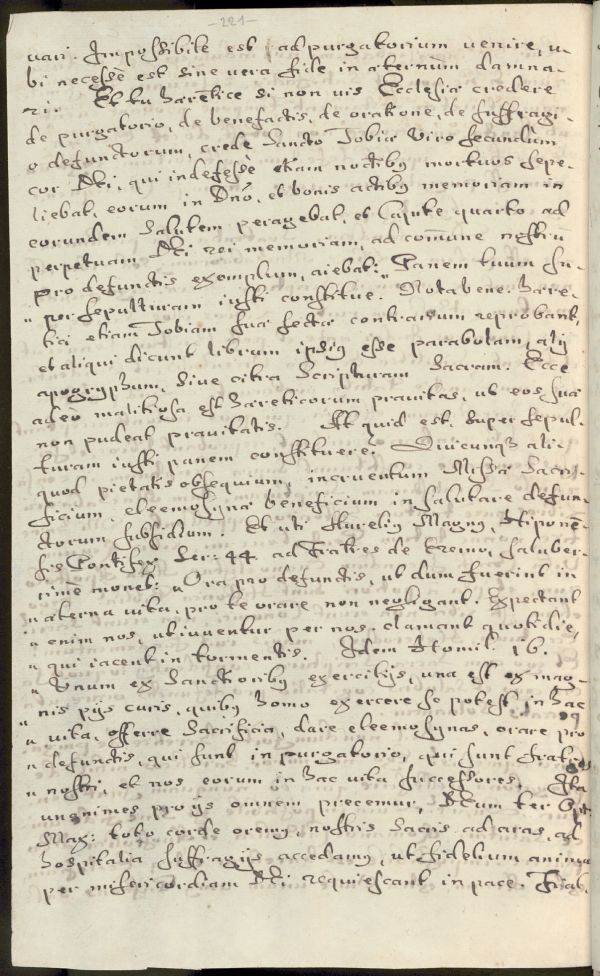 -221-
vari. Impossibile est ad purgatorium venire, u-
bi necesse est sine vera fide in aeternum damna-
ri. Et tu haeretice si non vis Ecclesiae credere
de purgatorio, de benefactis, de oratione, de suffragi-
o defunctorum, crede Sancto Tobiae viro secundum
cor Dei, qui indefesse etiam noctibus mortuos sepe-
liebat, eorum in Dno, et bonis actibus memoriam in
eorundem salutem peragebat, et Capite quarto ad
perpetuam Dei rei memoriam, ad comune nostru
pro defunctis exemplum, aiebat: "Panem tuum su-
"per sepulturam iusti constitue. Nota bene. Haere-
tici etiam Tobiam suae sectae contrarium reprobant,
et aliqui dicunt librum ipsius esse parabolam, alij
apogryphum, sive citra Scripturam Sacram. Ecce
adeo malitiosa est haereticorum pravitas, ut eos suae
non pudeat pravitatis. At quid est super sepul-
turam iusti panem constituere? Quicunq ali-
quod pietatis obsequium, incruentum Missae Sacri-
ficium, eleemosynae beneficium in salutare defun-
ctorum subsidium. Et uti Aurelius Magnus, Hiponen-
sis Pontifex Ser: 44. ad Fratres de Eremo, saluber-
rime monet: "Ora pro defunctis, ut dum fuerint in
"aeterna vita, pro te orare non negligant. Expectant
"enim nos, ut iuventur per nos. clamant quotidie,
"qui iacent in tormentis. Idem Homil: 16.
"Unum ex Sanctioribus exercitijs, una est ex mag-
"nis pijs curis, quibus homo exercere se potest in hac
"vita, offerre Sacrificia, dare eleemosynas, orare pro
"defunctis, qui sunt in purgatorio, qui sunt fratres
"nostri, et nos eorum in hac vita successores. Ita
unanimes pro ijs omnem precemur, Deum ter Opt:
Max: toto corde oremus, nostris Sacris ad aras, ad
hospitalia suffragijs accedamus, ut fidelium animae
per misericordiam Dei requiescant in pace. Fiat.